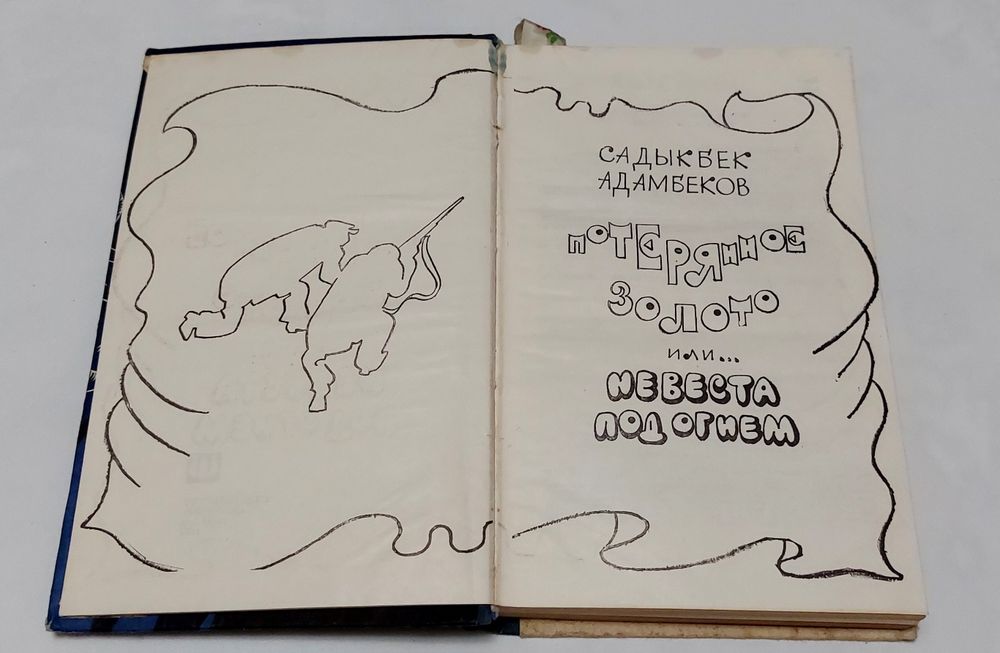 САДЫКБЕК
АДАМБЕКОВ
ПОТЕРЯННОЕ
ЗОЛОТО
ИЛИ...
НЕВЕСТА
ПОД ОГНЕМ